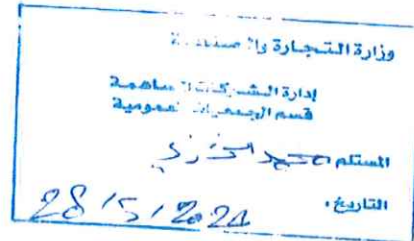 وزارة التجارة والصناعة
إدارة الشركات المساهمة
قسم الجمعيات العمومية
المستلم
التاريخ:
28/5/2024